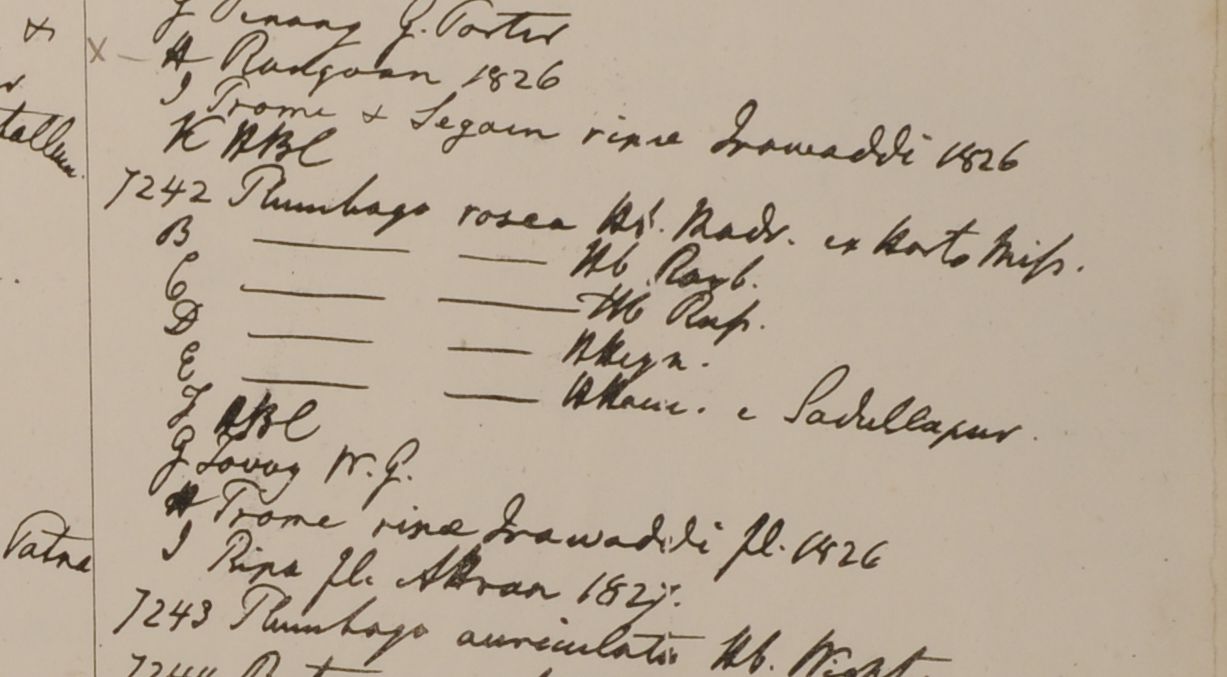 &
tallum.
Patna
G Penang G. Porter
X – H Rangoan 1826
I Prome & Segain ripæ Irawaddi 1826
K HBC
7242 Plumbago rosea Hb. Madr. ex horto Miss.
B —— —— Hb Roxb.
C —— —— Hb Russ.
D —— —— HHeyn.
E —— —— HHam. e Sadullapur.
F HBC
G Tavoy W. G.
H Prome ripæ Irawaddi fl. 1826
I Ripa fl. Attran 1827.
7243 Plumbago auriculata Hb. Wight
7244